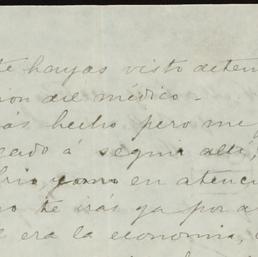 te hayas visto deten
ion del médico.
ás hecho pero me
cado á seguir allá,
en atenci
no te irás ya por a
era la economia,